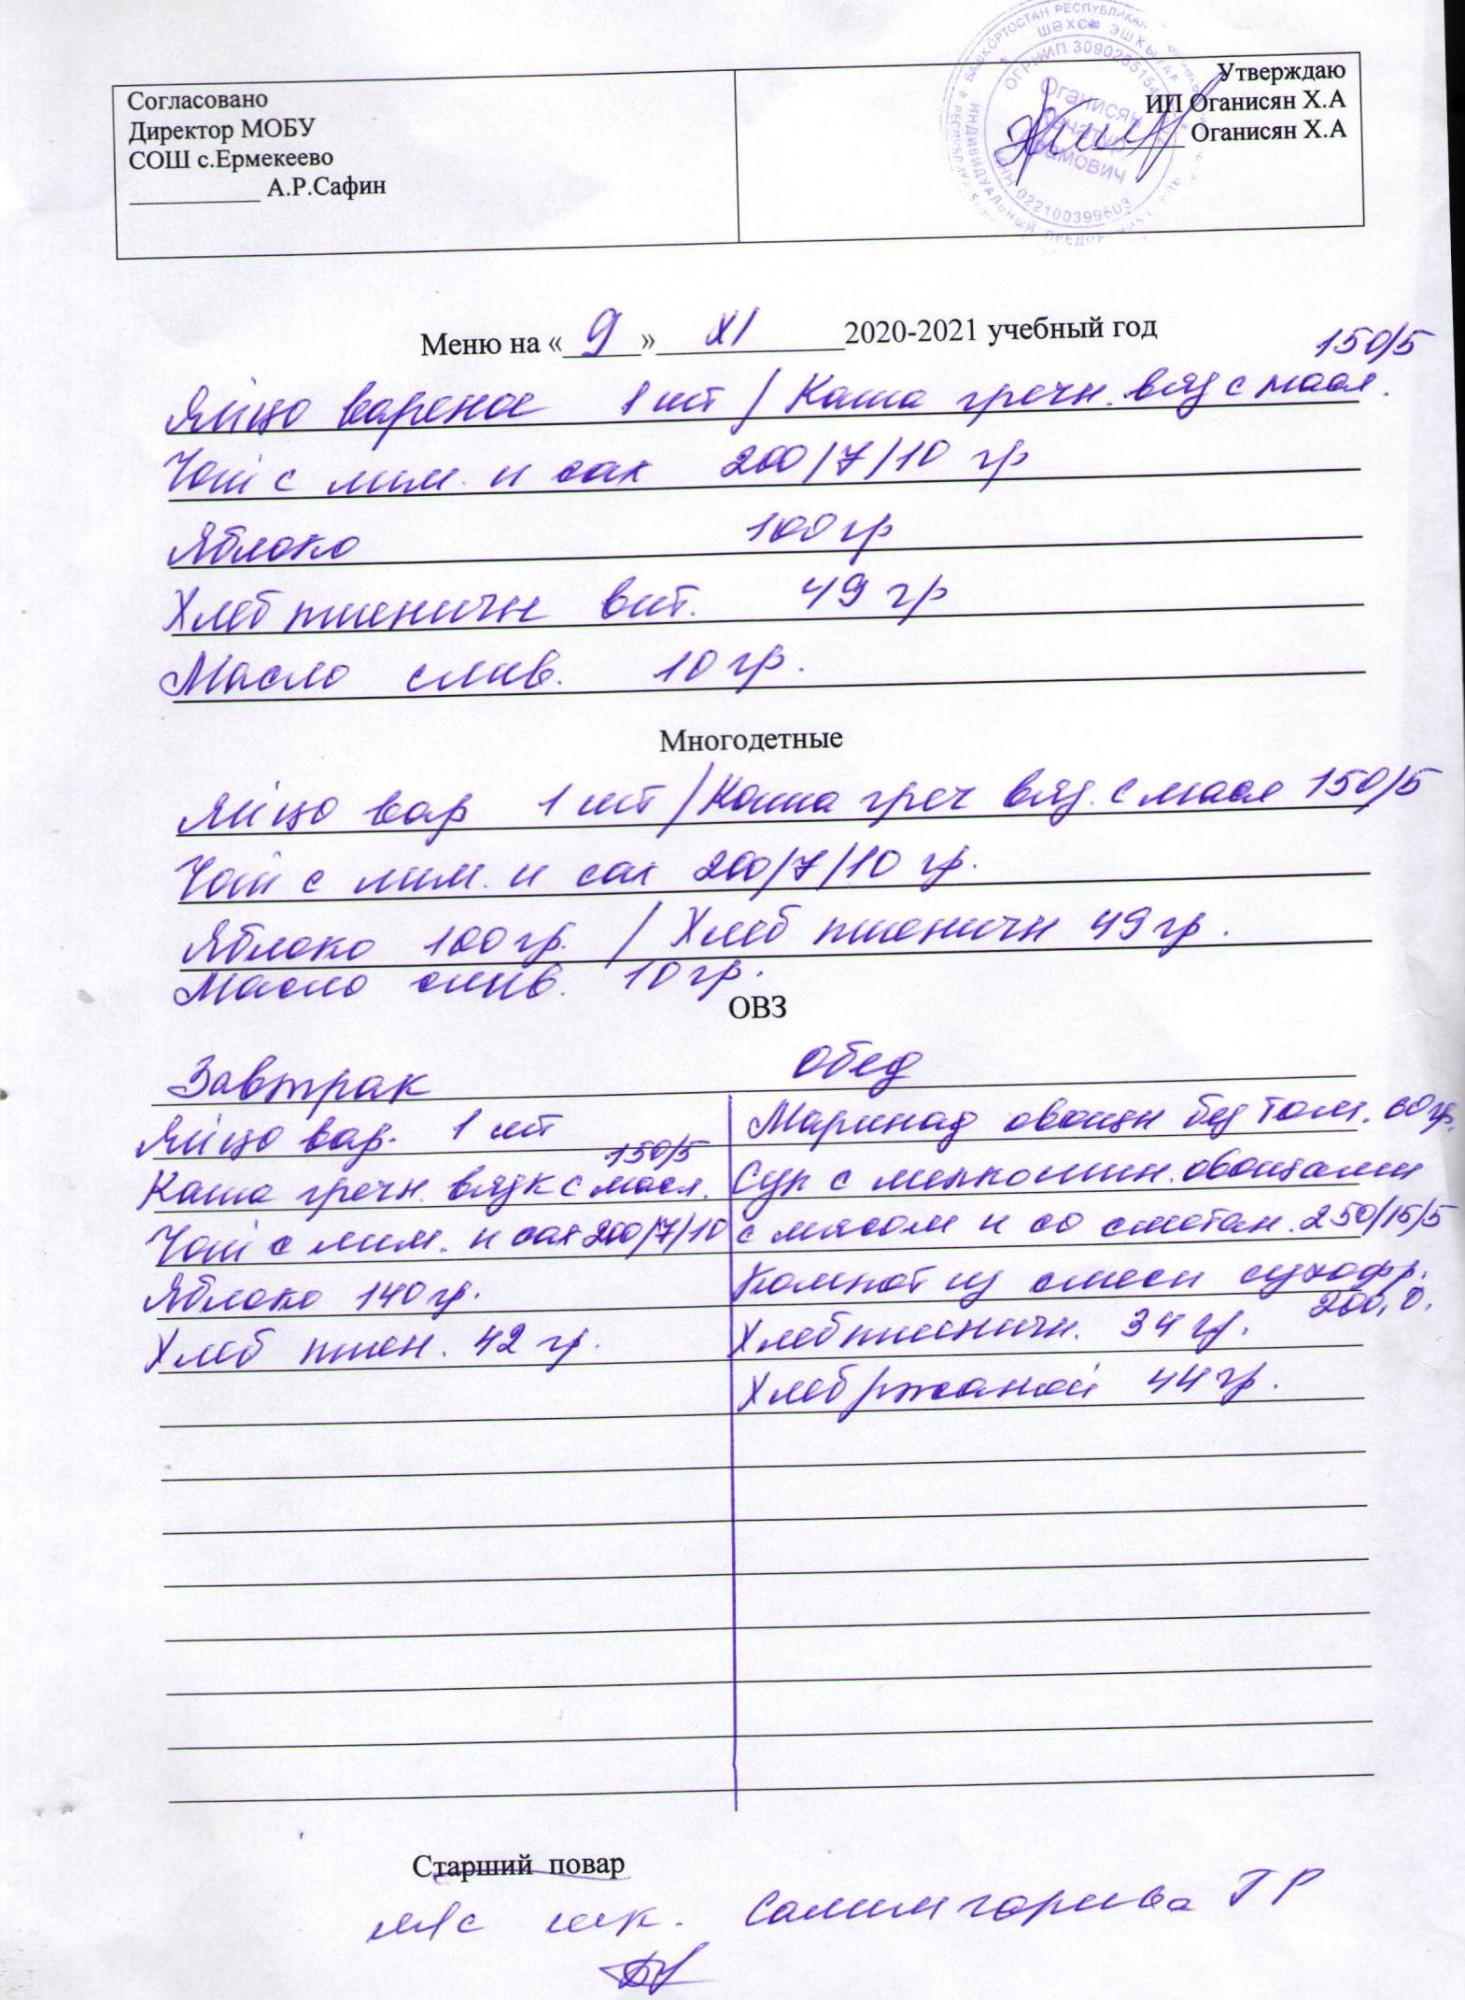 Согласовано
Директор МОБУ
СОШ с.Ермекеево
__________ А.Р.Сафин
Утверждаю
ИП Оганисян Х.А
Оганисян Х.А
Меню на «9» XI 2020-2021 учебный год
150/5
Яйцо вареное 1 шт / Каша гречн. вяз с масл.
Чай с лим. и сах 200/7/10 гр
Яблоко 100 гр
Хлеб пшеничн вит. 49 гр
Масло слив. 10 гр.
Многодетные
Яйцо вар 1 шт / Каша греч вяз. с масл 150/5
Чай с лим. и сах 200/7/10 гр.
Яблоко 100 гр. / Хлеб пшеничн 49 гр.
Масло слив. 10 гр.
ОВЗ
Завтрак
Яйцо вар. 1 шт
150/5
Каша гречн. вязк с масл.
Чай с лим. и сах 200/7/10
Яблоко 140 гр.
Хлеб пшен. 42 гр.
Обед
Маринад овощн без том. 60 гр.
Суп с мелкошин. овощами
с мясом и со сметан. 250/15/5
Компот из смеси сухофр.
200,0.
Хлеб пшеничн. 34 гр.
Хлеб ржаной 44 гр.
Старший повар
м/с шк. Салимгареева Г Р